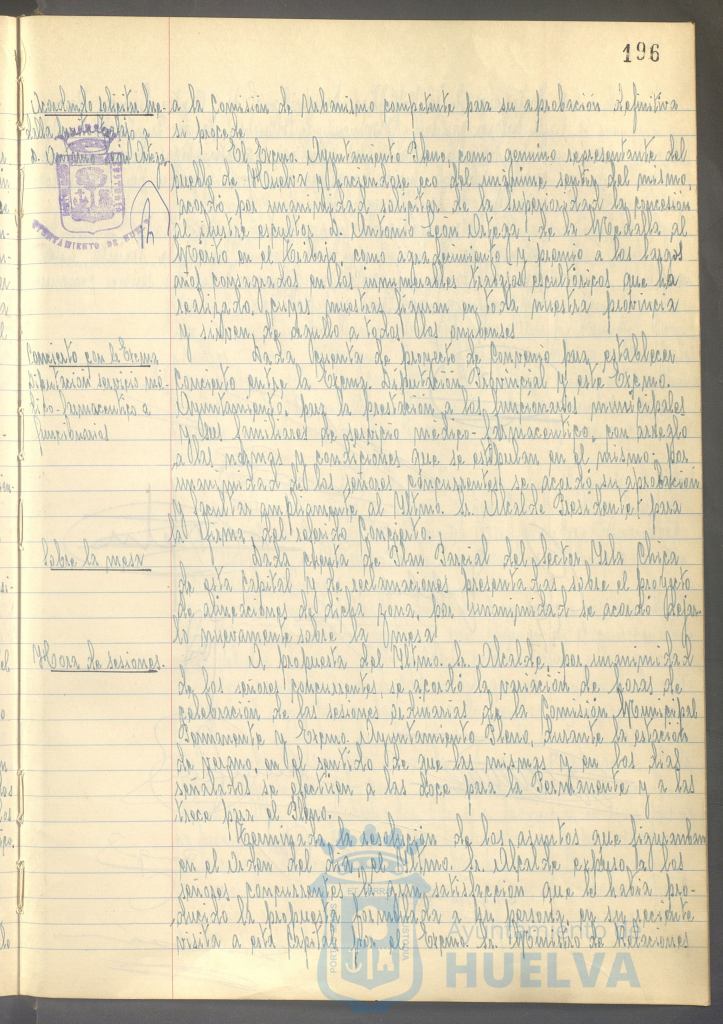 196
Acordando solicitar Me- a la Comisión de Urbanismo competente para su aprobación definitiva
dalla al Trabajo a si procede
D. Antonio León Ortega El Excmo. Ayuntamiento Pleno, como genuino representante del
pueblo de Huelva y haciéndose eco del unánime sentir del mismo,
acordó por unanimidad solicitar de la superioridad la concesión
al ilustre escultor D. Antonio León Ortega, de la Medalla al
Mérito en el Trabajo, como agradecimiento y premio a los largos
años consagrados en los innumerables trabajos escultóricos que ha
realizado, cuyas muestras figuran en toda nuestra provincia
y sirven de orgullo a todos los onubenses
AYUNTAMIENTO DE HUELVA
Concierto con la Excma Dada cuenta de proyecto de Convenio para establecer
Diputación servicio mé- Concierto entre la Excma. Diputación Provincial y este Excmo.
dico-farmacéutico a Ayuntamiento, para la prestación a los funcionarios municipales
funcionarios y sus familiares de servicio médico-farmacéutico, con arreglo
a las normas y condiciones que se estipulan en el mismo; por
unanimidad de los señores concurrentes se acordó su aprobación
y facultar ampliamente al Iltmo. Sr. Alcalde Presidente para
la firma del referido Concierto.
Sobre la mesa Dada cuenta de Plan Parcial del Sector Isla Chica
de esta capital y de reclamaciones presentadas sobre el proyecto
de alineaciones de dicha zona, por unanimidad se acordó dejar-
lo nuevamente sobre la mesa
Hora de sesiones. A propuesta del Iltmo. Sr. Alcalde, por unanimidad
de los señores concurrentes, se acordó la variación de horas de
celebración de las sesiones ordinarias de la Comisión Municipal
Permanente y Excmo. Ayuntamiento Pleno, durante la estación
de verano, en el sentido de que las mismas y en los días
señalados se efectúen a las doce para la Permanente y a las
trece para el Pleno.
Terminada la resolución de los asuntos que figuraban
en el Orden del día, el Iltmo. Sr. Alcalde expuso a los
señores concurrentes la gran satisfacción que le había pro-
ducido la propuesta formulada a su persona, en su reciente
visita a esta capital por el Excmo. Sr. Ministro de Relaciones
Ayuntamiento de
HUELVA